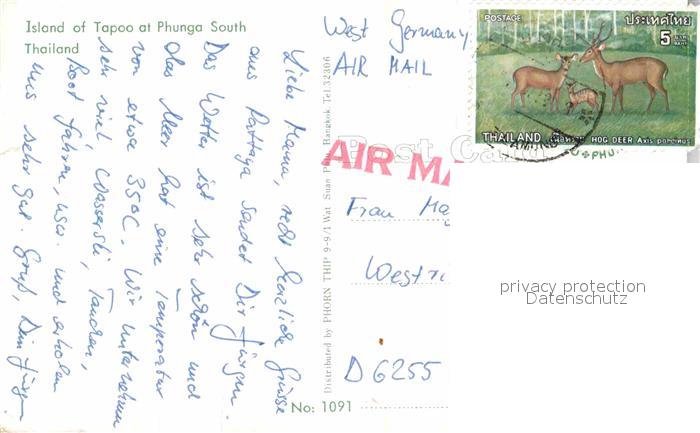 Island of Tapoo at Phunga South
Thailand
Liebe Mama, recht herzliche Grüsse
aus Pattaya sendet Dir Jürgen.
Das Wetter ist sehr schön und
das Meer hat eine Temperatur
von etwa 35°C. Wir unternehmen
sehr viel Wasserski, Tauchen,
Boot fahren, usw. und erholen
uns sehr gut. Gruß, Dein Jürgen
Distributed by PHORN THIP 9-9/1 Wat Suan Bangkok Tel.32306
No: 1091
West Germany
AIR MAIL
POSTAGE
ประเทศไทย
5 บาท
BAHT
THAILAND เนื้อทราย HOG DEER Axis porcinus
Post Card
AIR MA
Frau
D 6255
privacy protection
Datenschutz